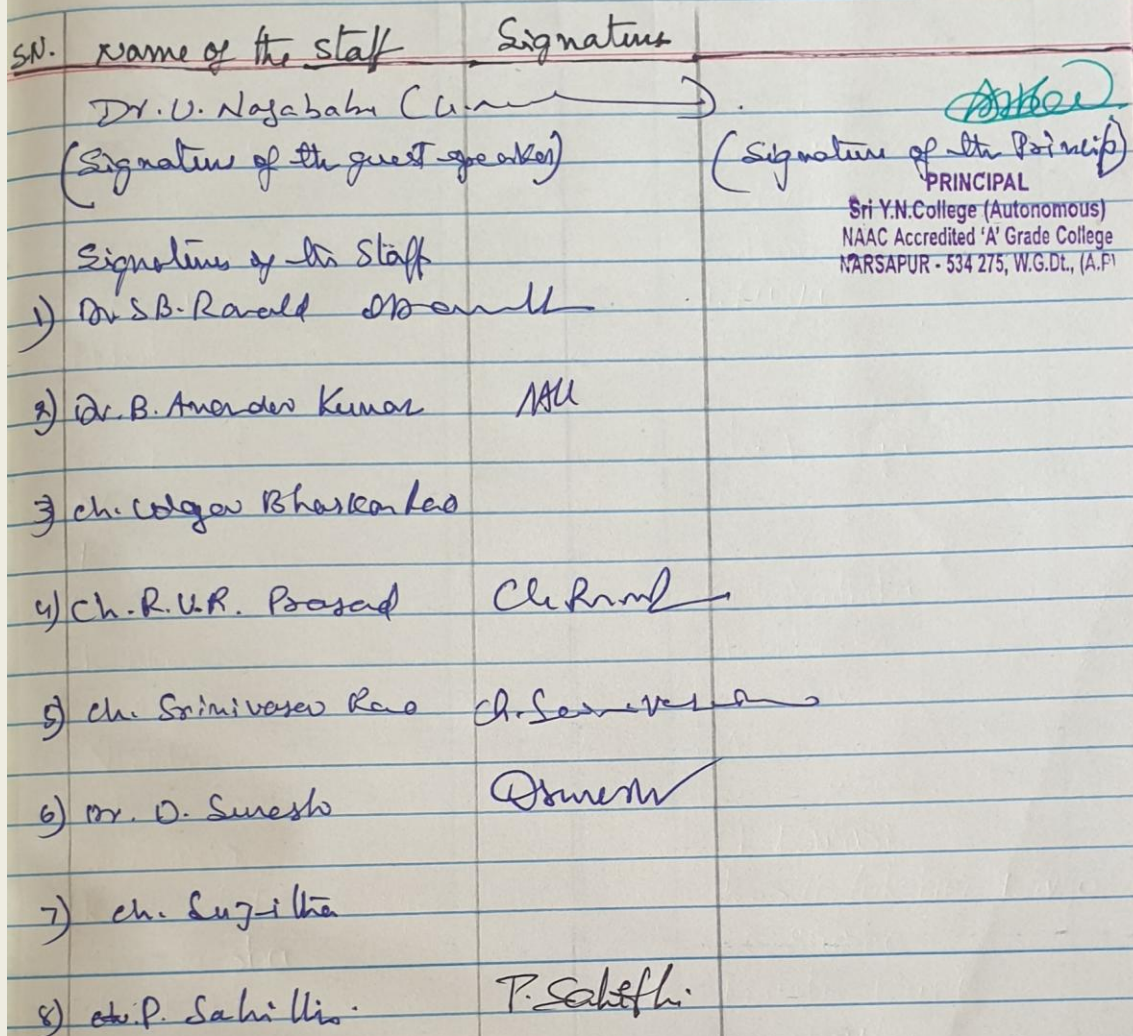 SN. Name of the staff Signature
Dr. U. Nagababu (
(Signature of the guest speaker) (Signature of the Principal)
PRINCIPAL
Sri Y.N.College (Autonomous)
NAAC Accredited 'A' Grade College
NARSAPUR - 534 275, W.G.Dt., (A.P)
Signature of the Staff
1) Dr S.B. Ronald
2) Dr. B. Ananda Kumar
3) Ch. Bhaskar Rao
4) Ch. R.V.R. Prasad
5) Ch. Srinivasa Rao
6) Dr. D. Suresh
7) Ch. Sujitha
8) P. Sahithi. P. Sahithi.